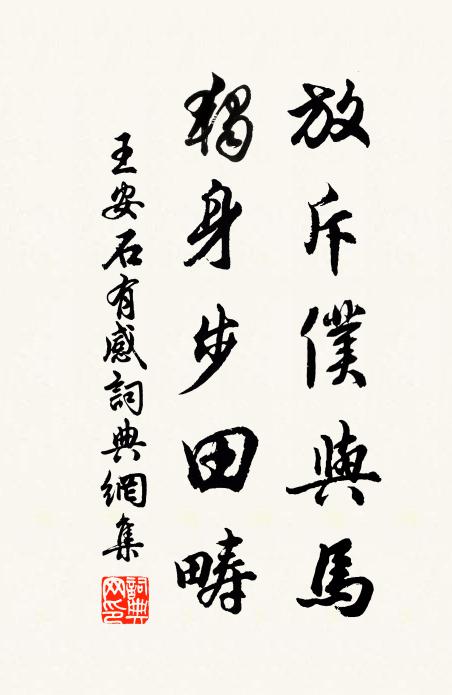 放斥僕與馬
獨身步田疇
王安石有感詞典網集
詞典網印